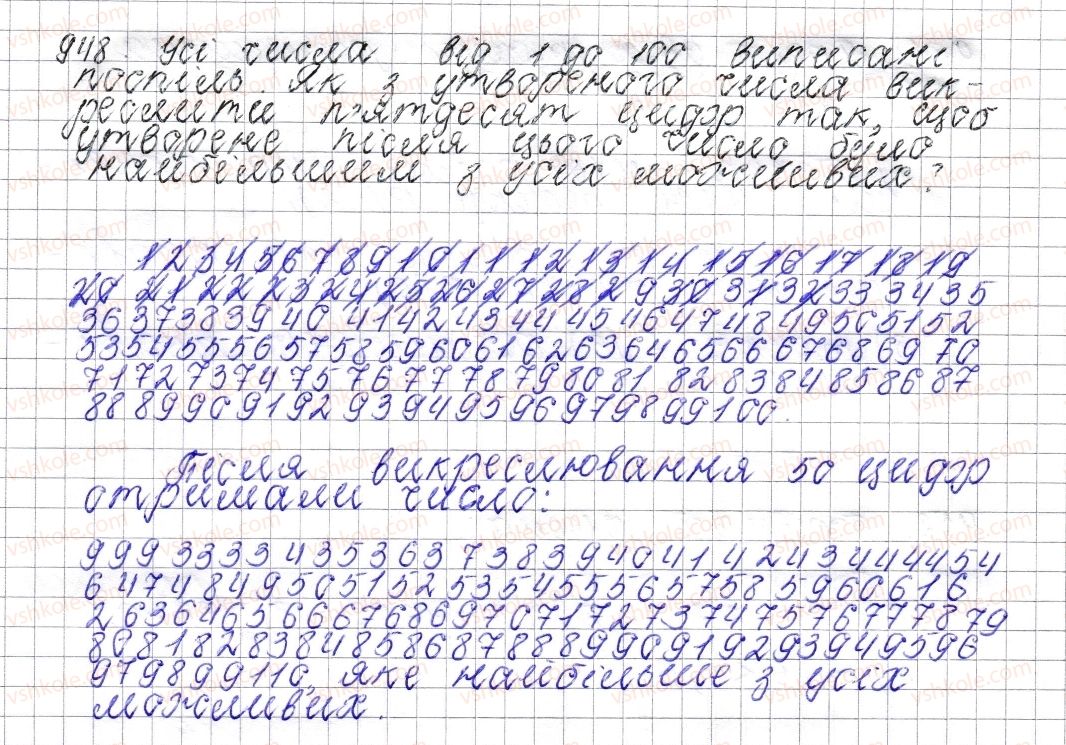 948. Усі числа від 1 до 100 виписані
поспіль. Як з утвореного числа вик-
реслити п'ятдесят цифр так, щоб
утворене після цього число було
найбільшим з усіх можливих?
1 2 3 4 5 6 7 8 9 1 0 1 1 1 2 1 3 1 4 1 5 1 6 1 7 1 8 1 9
2 0 2 1 2 2 2 3 2 4 2 5 2 6 2 7 2 8 2 9 3 0 3 1 3 2 3 3 3 4 3 5
3 6 3 7 3 8 3 9 4 0 4 1 4 2 4 3 4 4 4 5 4 6 4 7 4 8 4 9 5 0 5 1 5 2
5 3 5 4 5 5 5 6 5 7 5 8 5 9 6 0 6 1 6 2 6 3 6 4 6 5 6 6 6 7 6 8 6 9 7 0
7 1 7 2 7 3 7 4 7 5 7 6 7 7 7 8 7 9 8 0 8 1 8 2 8 3 8 4 8 5 8 6 8 7
8 8 8 9 9 0 9 1 9 2 9 3 9 4 9 5 9 6 9 7 9 8 9 9 1 0 0.
Після викреслювання 50 цифр
отримали число:
9 9 9 3 3 3 3 4 3 5 3 6 3 7 3 8 3 9 4 0 4 1 4 2 4 3 4 4 4 4 5 4
6 4 7 4 8 4 9 5 0 5 1 5 2 5 3 5 4 5 5 5 6 5 7 5 8 5 9 6 0 6 1 6
2 6 3 6 4 6 5 6 6 6 7 6 8 6 9 7 0 7 1 7 2 7 3 7 4 7 5 7 6 7 7 7 8 7 9
8 0 8 1 8 2 8 3 8 4 8 5 8 6 8 7 8 8 8 9 9 0 9 1 9 2 9 3 9 4 9 5 9 6
9 7 9 8 9 9 1 1 0, яке найбільше з усіх
можливих.